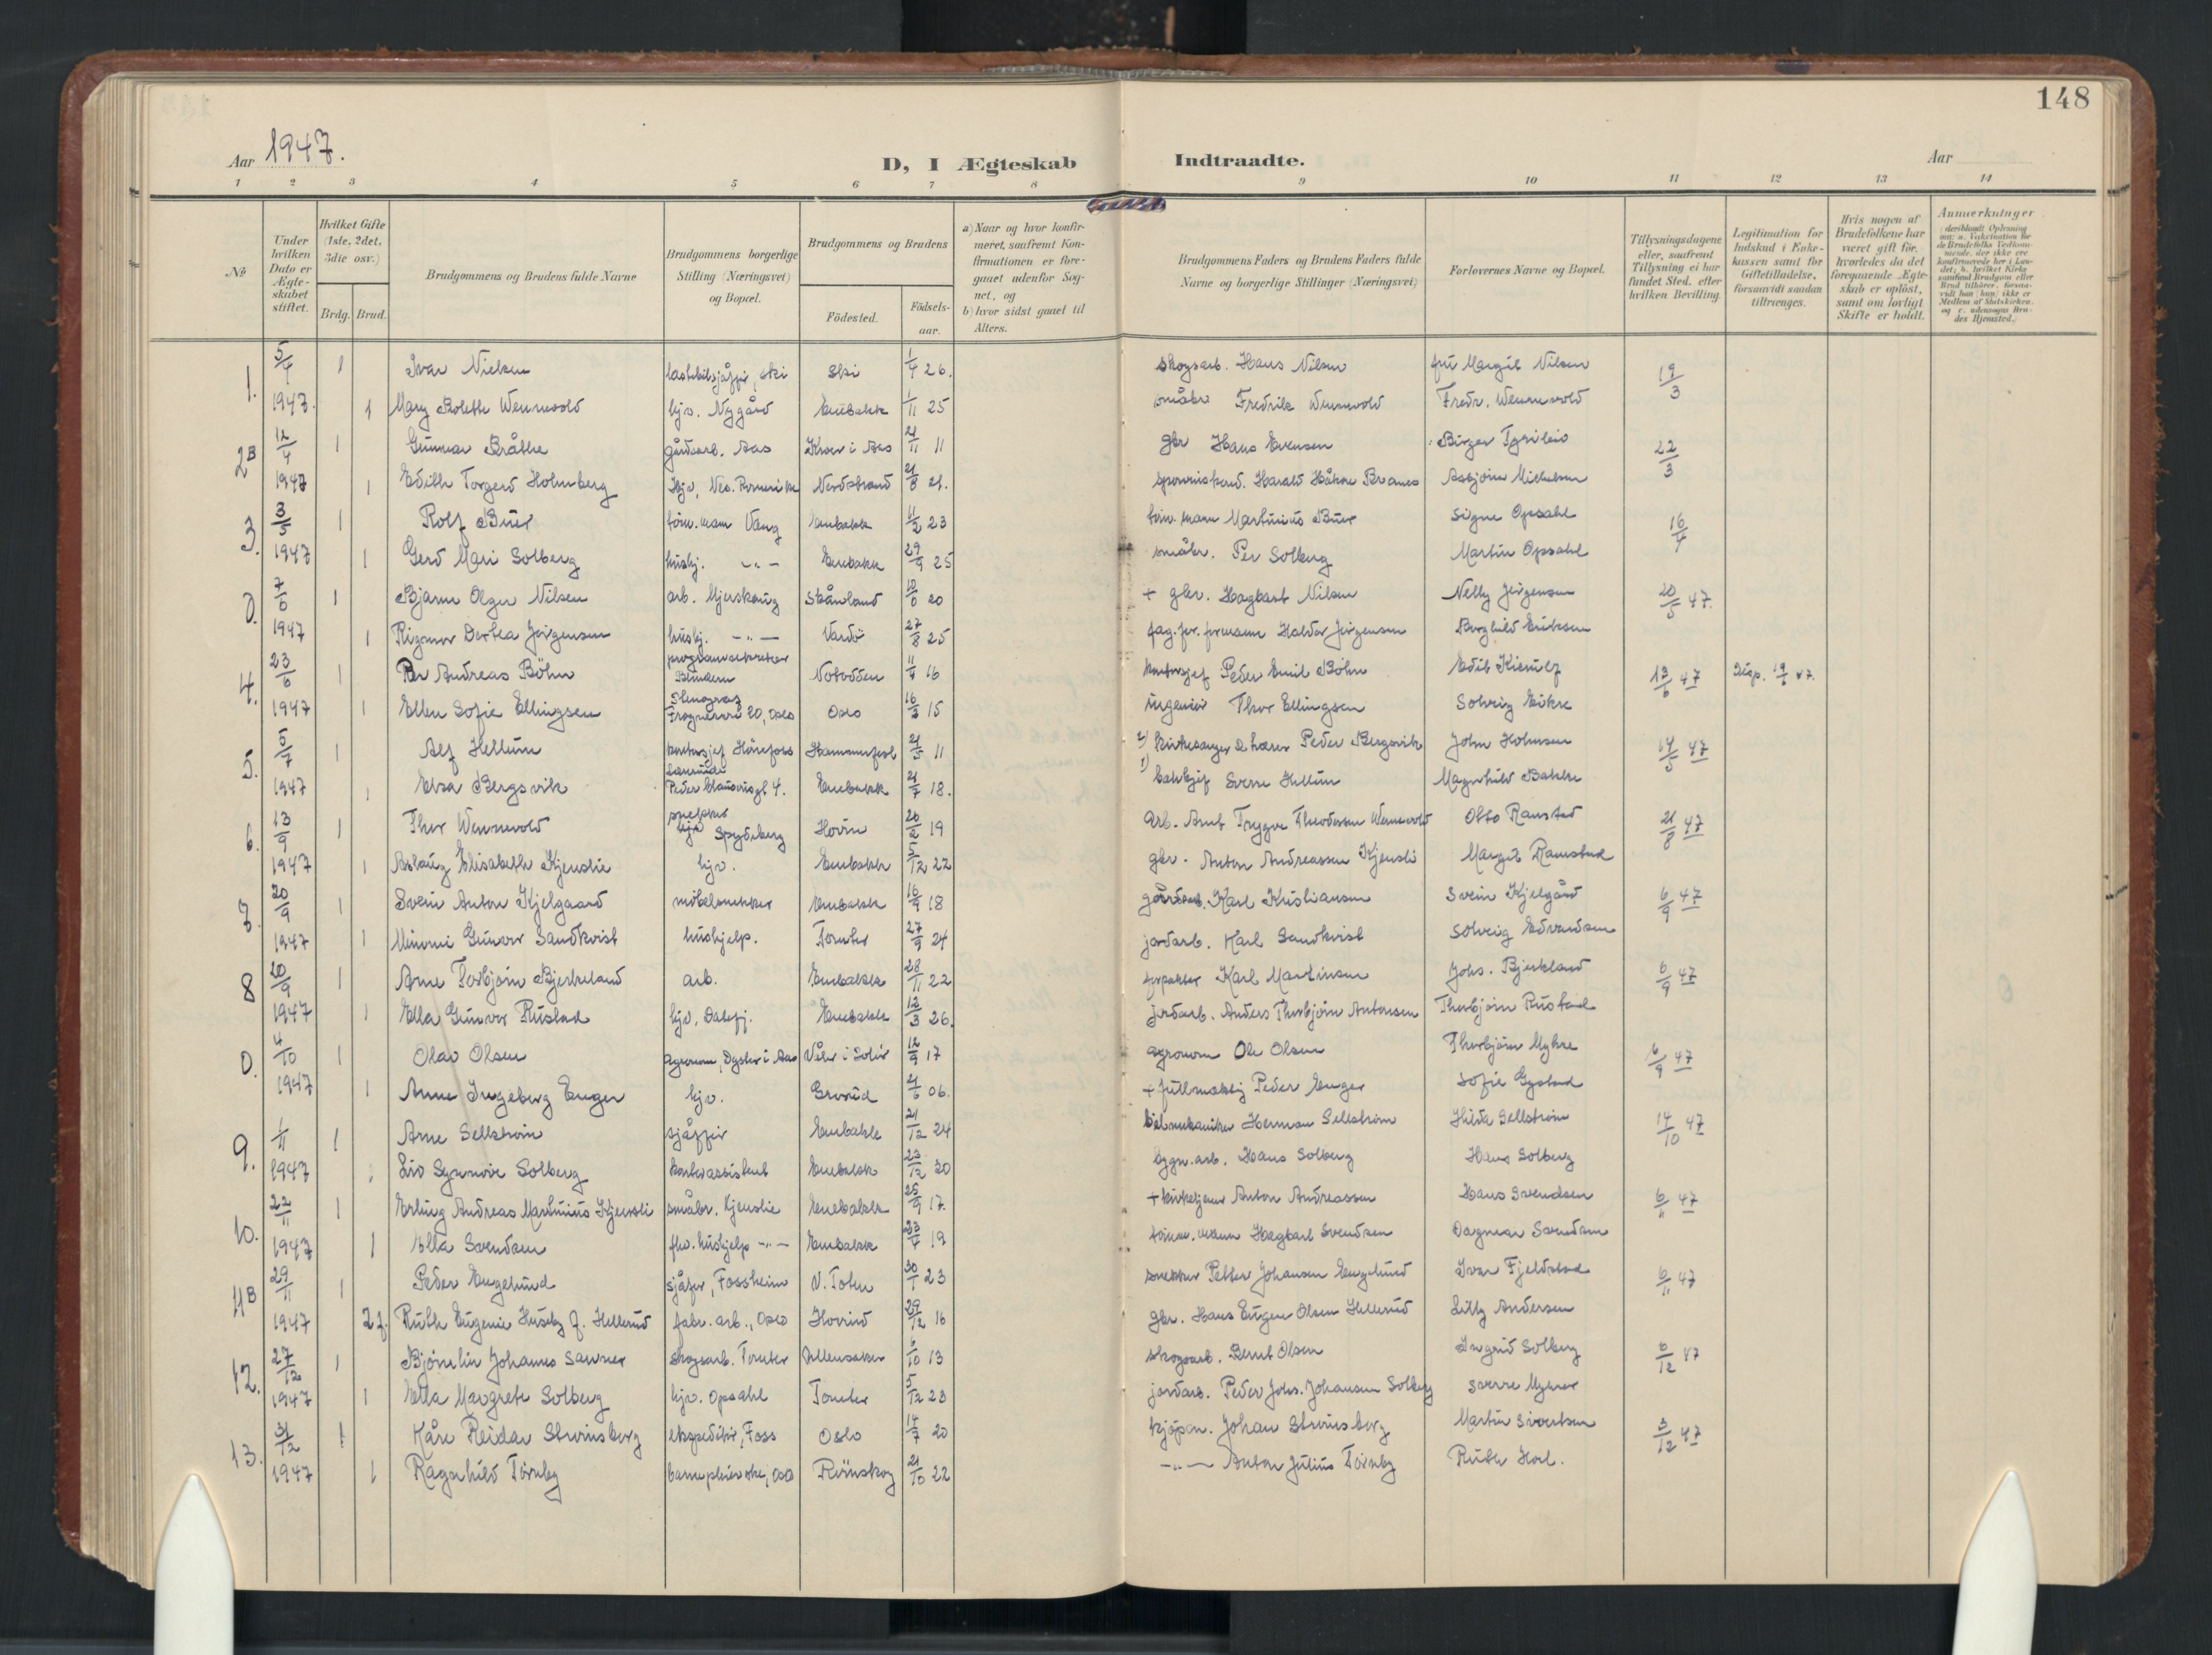 148
Aar 1947.
D, I Ægteskab Indtraadte.
Aar
1 2 3 4 5 6 7 8 9 10 11 12 13 14
No
Under hvilken Dato er Ægteskabet stiftet.
Hvilket Gifte (1ste, 2det, 3die osv.)
Brdg. Brud.
Brudgommens og Brudens fulde Navne
Brudgommens borgerlige Stilling (Næringsvei) og Bopæl.
Brudgommens og Brudens
Födested.
Födselsaar.
a) Naar og hvor konfirmeret, saafremt Konfirmationen er foregaaet udenfor Sognet, og
b) hvor sidst gaaet til Alters.
Brudgommens Faders og Brudens Faders fulde Navne og borgerlige Stillinger (Næringsvei)
Forlovernes Navne og Bopæl.
Tillysningsdagene eller, saafremt Tillysning ei har fundet Sted, efter hvilken Bevilling.
Legitimation for Indskud i Enkekassen samt for Giftetilladelse, forsaavidt saadan tiltrænges.
Hvis nogen af Brudefolkene har været gift för, hvorledes da det foregaaende Ægteskab er oplöst, samt om lovligt Skifte er holdt.
Anmerkninger
1. 5/4 1 Ivar Nielsen lastebilsjåffør, Ski Ski 1/4 26. skogsarb. Hans Nilsen fru Margit Nilsen 19/3
1947. 1 Mary Bolette Wennevold hjv. Nygård Enebakk 1/11 25 småbr. Fredrik Wennevold Fredr. Wennevold
2B 12/4 1 Gunnar Bråthe gårdsarb. Aas Kroer i Aas 21/11 11 gbr Hans Evensen Birger 22/3
1947 1 Edith Torgerd Holmberg Hjv, Nes. Romerike Nordstrand 21/8 21. Harald Håkon Asbjörn Michelsen
3. 3/5 1 Rolf Buer töm.mann Vang Enebakk 11/2 23 töm.mann Martinius Buer Signe Opsahl 16/4
1947 1 Gerd Mari Solberg hushj. -"- Enebakk 29/9 25 småbr. Per Solberg Martin Opsahl
0. 7/6 1 Bjarne Olger Nilsen arb. Mjerskaug Skånland 10/6 20 + gbr. Hagbart Nilsen Nelly Jörgensen 20/5 47.
1947 1 Rigmor Dortea Jörgensen hushj. -"- Vardö 27/8 25 formann Haldor Jörgensen Borghild Eriksen
4. 23/6 1 Per Andreas Böhn programsekretær Blindern Notodden 11/4 16 kontorsjef Peder Emil Böhn Edit Kierulf 13/6 47 Disp. 19/6 47.
1947 1 Ellen Sofie Ellingsen Stenograf 20, Oslo Oslo 16/3 15 ingeniör Thor Ellingsen Solveig Eikre
5. 5/7 1 Alf Hellum kontorsjef Hönefoss Hammerfest 21/5 11 2) kirkesanger & lærer Peder Bergsvik John Holmsen 14/5 47
1947 1 Elsa Bergsvik Lærerinde Peder Clausönsgt 4. Enebakk 21/7 18. 1) Sverre Hellum Magnhild Bakke
6. 13/9 1 Thor Wennevold snekker Spydeberg Hovin 20/2 19 arb. Arnt Trygve Theodorsen Wennevold Otto Ramstad 21/8 47
1947 1 Aslaug Elisabeth Kjenslie hjv. Enebakk 5/12 22 gbr. Anton Andreassen Kjensli Margit Ramstad
7. 20/9 1 Svein Anton Kjelgaard möbelsnekker Enebakk 16/9 18 gårdsarb. Karl Kristiansen Svein Kjelgård 6/9 47
1947 1 Minnie Gunvor Sandkvist hushjelp. Tomter 27/9 24 jordarb. Karl Sandkvist Solveig Edvardsen
8 20/9 1 Arne Torbjörn Bjerkeland arb. Enebakk 28/11 22 forpakter Karl Martinsen Johs. Bjerkland 6/9 47
1947 1 Ella Gunvor Rustad hjv, Dalefj. Enebakk 12/3 26. jordarb. Anders Thorbjörn Antonsen Thorbjörn Rustad
0. 4/10 1 Olav Olsen agronom, Dyster i Aas Våler i Solör 12/9 17 agronom Ole Olsen Thorbjörn Myhre 6/9 47
1947 1 Anne Ingeborg Enger hjv. Grorud 21/6 06. + fullmektig Peder Enger Sofie Gystad
9. 1/11 1 Arne Sellström sjåffør Enebakk 21/12 24 bilmekaniker Herman Sellström Hilda Sellström 14/10 47
1947 1 Liv Synnöve Solberg kontorassistent Enebakk 23/12 30 bygn.arb. Hans Solberg Hans Solberg
10. 22/11 1 Erling Andreas Martinius Kjensli småbr. Kjenslie Enebakk 25/9 17. + kirketjener Anton Andreassen Hans Svendsen 6/11 47
1947 1 Ella Svendsen fhv. hushjelp -"- Enebakk 23/4 19 tömm.mann Hagbart Svendsen Dagmar Svendsen
11B 29/11 1 Peder Engelund sjåfør, Fossheim V. Toten 30/1 23 snekker Petter Johansen Engelund Ivar Fjeldstad 6/11 47
1947 2 f. Ruth Eugenie Huseby f. Hellerud fabr. arb., Oslo Hovind 29/12 16 gbr. Hans Eugen Olsen Hellerud Lilly Andersen
12. 27/12 1 Björnulin Johannes Sauner skogsarb. Tomter Ullensaker 6/10 13 skogsarb. Bernt Olsen Ingrid Solberg 6/12 47
1947 1 Ella Margrete Solberg hjv. Opsahl Tomter 5/12 23 jordarb. Peder Johs. Johansen Solberg Sverre Myhrer
13. 31/12 1 Kåre Reidar Strömsborg ekspeditör, Foss Oslo 14/7 20 kjöpm. Johan Strömsborg Martin Sivertsen 3/12 47
1947 1 Ragnhild Törnby barnepleierske, Oslo Rönskog 21/10 22 -"- Anton Julius Törnby Ruth Hoel.